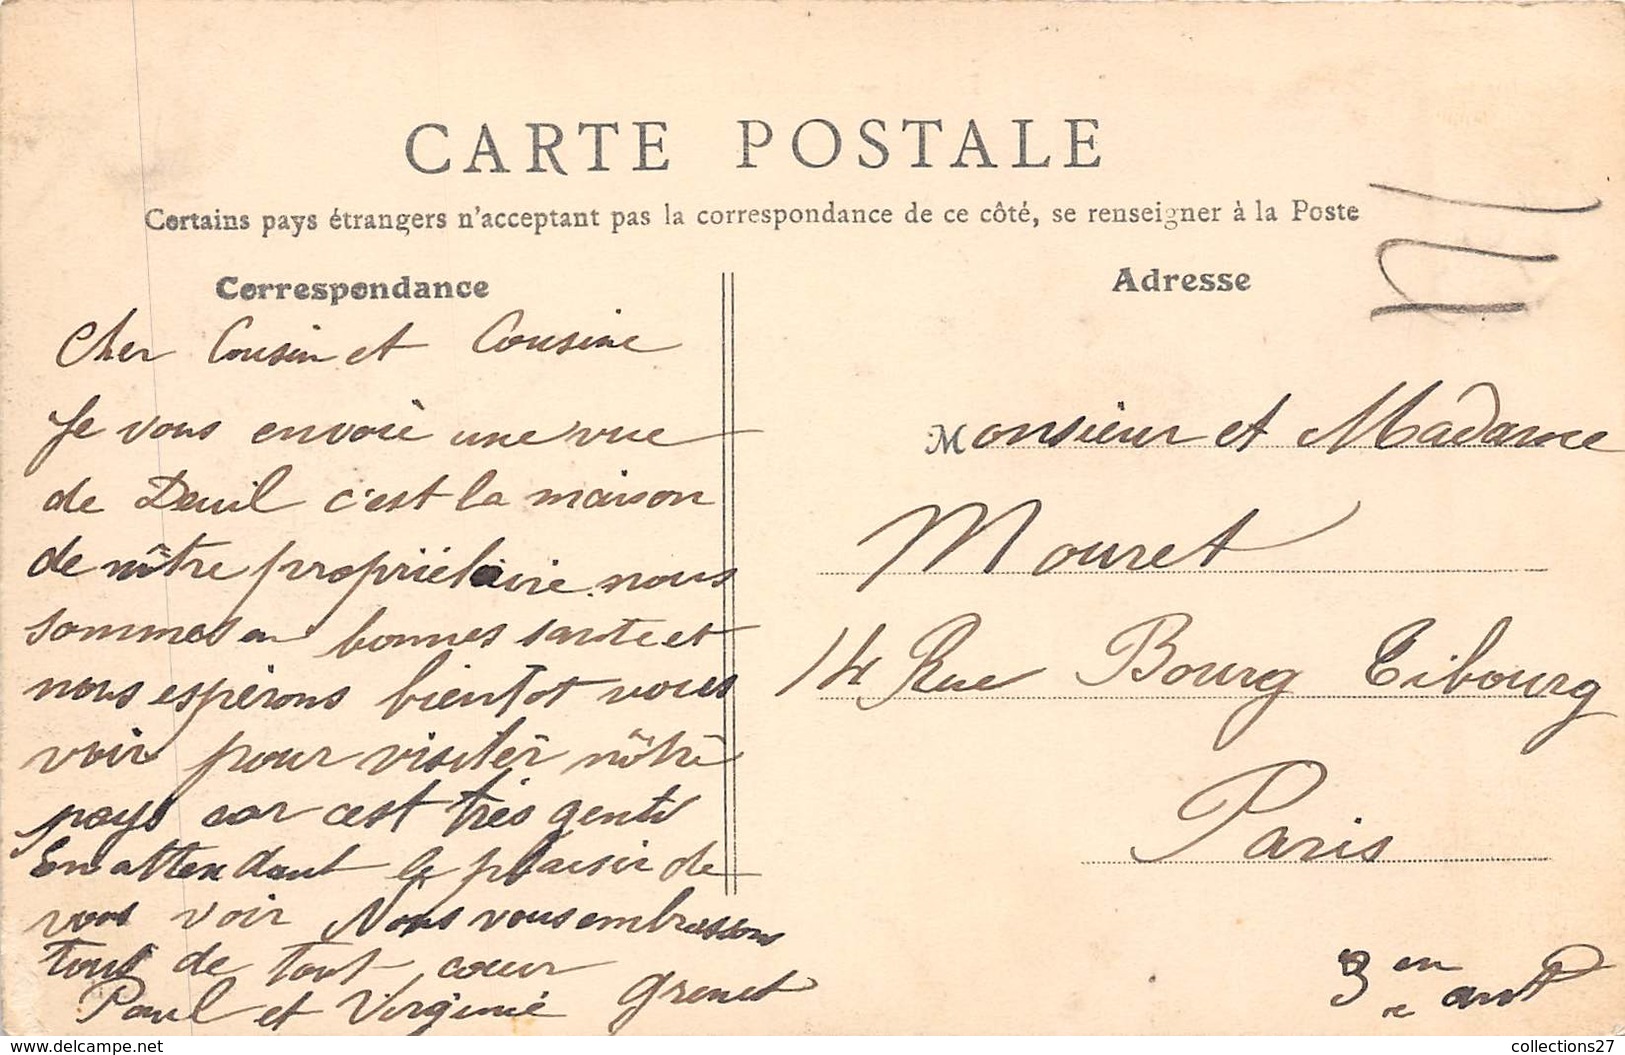 CARTE POSTALE
Certains pays étrangers n'acceptent pas la correspondance de ce côté, se renseigner à la Poste
Correspondance
Cher Cousin et Cousine
Je vous envoiè une vue
de Deuil c'est la maison
de nôtre propriélaire nous
sommes en bonnes sante et
nous espèrons bientot vous
voir pour visiter nôtrè
pays car cest très gentil
En attendant le plaisir de
vous voir Nous vous embrassons
tous de tout coeur
Paul et Virginie Grenet
Adresse
Monsieur et Madame
Mouret
14 Rue Bourg Tibourg
Paris
3 en